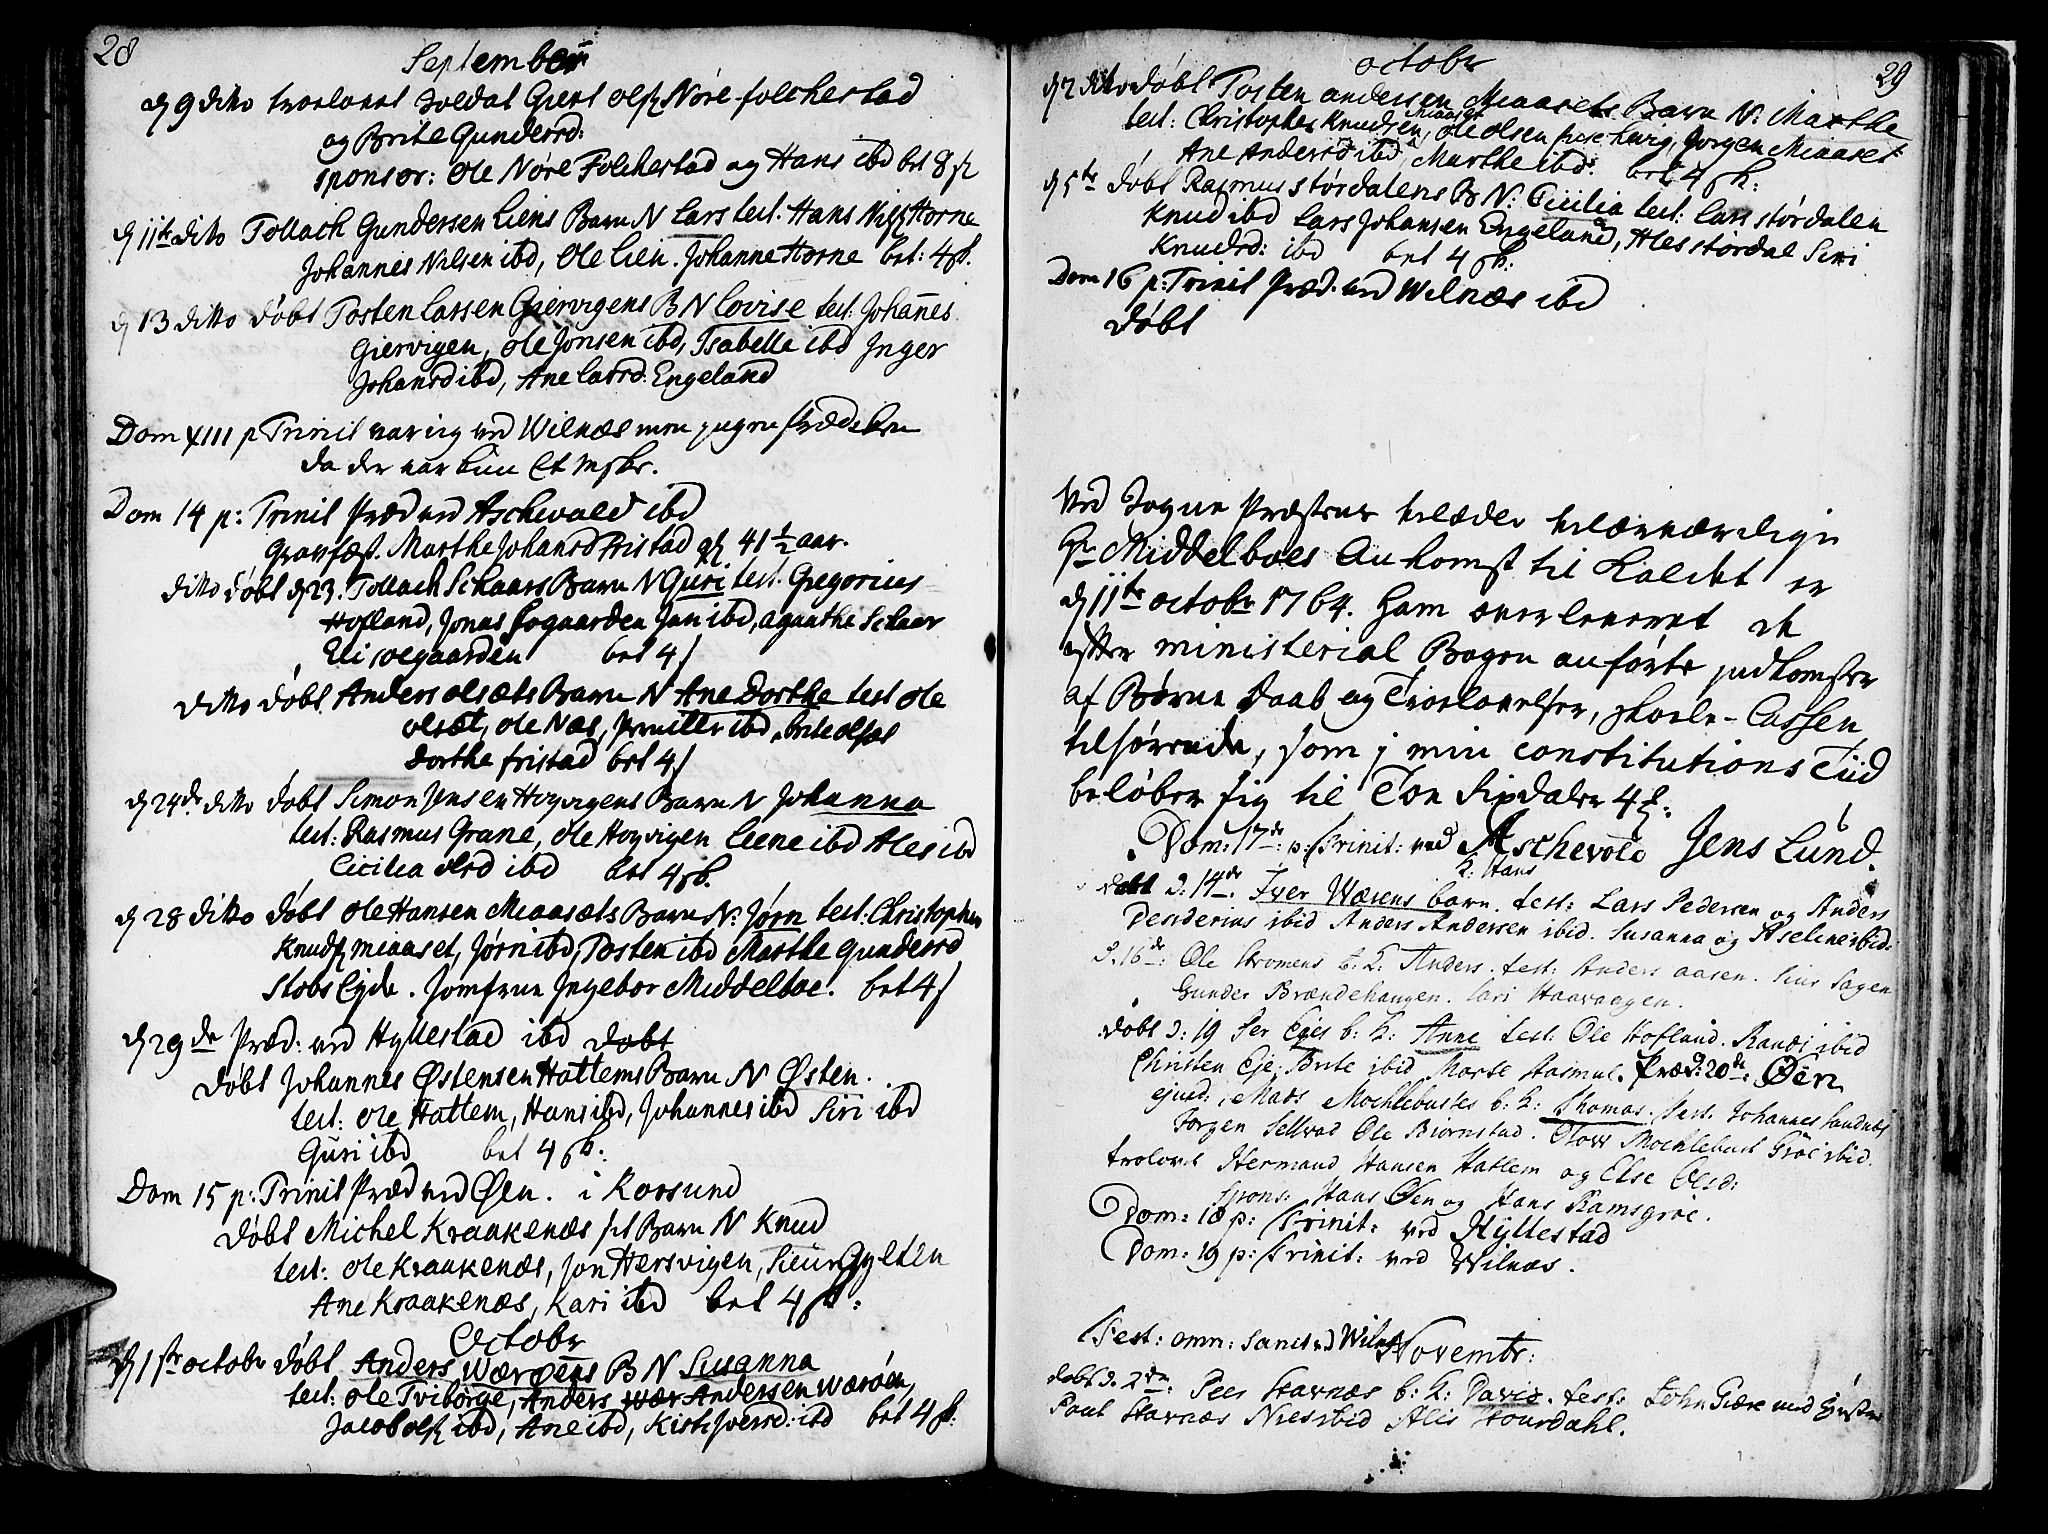 28
September
d 9 ditto trolovet Soldat Giert Ols: Nøre folchestad
og Brite Gundersd:
sponsor: Ole Nøre Folchestad og Hans ibd bet 8 s
d 11te ditto Tollach Gundersen Liens Barn N Lars test. Hans Nils: Horne
Johannes Nilsen ibd, Ole Lien. Johanne Horne bet: 4 sk.
d 13 ditto døbt Tosten Larsen Giervigens B N Lovise test: Johannes
Giervigen, Ole Jonsen ibd, Isabelle ibd Inger
Johansd ibd, Ane Larsd: Engeland
Dom XIII p Trinit var ieg ved Wilnæs men ingen Prædiken
da der var kun Et Msker.
Dom 14 p: Trinit Præd ved Aschevold ibd
Gravfæst. Marthe Johansd Fristad gl 41 ½ aar.
ditto døbt d 23. Tollach Schaars Barn N Guri test. Gregorius
Hofland, Jonas Søgaarden Jan ibd, Aganthe Schaar
Eli Søegaarden bet 4 s
ditto døbt Anders Olsæts Barn N Ane Dorthe test Ole
Olsæt, Ole Næs, Pernille ibd, brite Olsæt
Dorthe fristad bet 4 s
d 24de ditto døbt Simon Jensen Høyvigens Barn N Johanna
test: Rasmus Grane, Ole Høyvigen Leene ibd Ales ibd
Cicilia Olsd ibd bet 4 sk.
d 28 ditto døbt Ole Hansen Miaasæts Barn N: Jørn test: Christopher
Knuds: Miaaset, Jørn ibd, Tosten ibd Marthe Gundersd
Slobs Eyde. Jomfrue Ingebor Middelboe. bet 4 s
d 29de Præd: ved Hyllestad ibd døbt
døbt Johannes Østensen Hattems Barn N Østen.
test: Ole Hattem, Hans ibd, Johannes ibd Siri ibd
Guri ibd bet 4 sk:
Dom 15 p: Trinit Præd ved Øen. i Korsund
døbt Michel Kraakenæs sit Barn N Knud
test: Ole Kraakenæs, Jon Hersvigen, Siur Gylten
Ane Kraakenæs, Kari ibd bet 4 sk:
Octobr
d 1ste octobr døbt Anders Wærøens B N Susanna
test: Ole Tviborge, Anders Andersen Wærøen,
Jacob Ols: ibd, Ane ibd, Kisti Iversd: ibd bet 4 sk:
29
octobr
d 2 ditto døbt Tosten Andersen Miaasets Barn N: Marthe
test: Christopher Knudsen Miaaset, Ole Olsen, Jørgen Miaaset
Ane Andersd ibd, Marthe ibd: bet 4 sk:
d 5te døbt Rasmus Størdalens B N: Cicilia test: Lars Størdalen
Knud ibd Lars Johansen Engeland, Ales Størdal Siri
Knudsd: ibd bet 4 sk:
Dom 16 p: Trinit Præd. ved Wilnæs ibd
døbt
Ved Sogne Præstens velædle velærværdige
Hr Middelboes Ankomst til Kaldet er
d 11te octobr 1764. Ham overleveret de
efter ministerial Bogen anførte indkomster
af Børne Daab og Trolovelser, Skole-Cassen
tilhørende, som i min constitutions Tiid
beløber sig til Toe Rixdaler 4 s:
Jens Lund.
Dom: 17de: p: Trinit: ved Aschevold
døbt d: 14de. Iver Wærens barn k: Hans. test: Lars Pedersen og Anders
Denderius ibid Anders Andersen ibid. Susanna og Aseline ibid.
d. 16de: Ole Stromens b: k: Anders. test: Anders Aasen. Siur Sagen
Gunder Brændehaugen. Kari Haavaagen.
døbt d: 19 Per Ejes b: k: Anne test: Ole Hofland. Randi ibid
Christen Eje. Brite ibid Marte Aasmul. Præd: 20de: Øen
ejusd: Mads Mochlebusts b: k: Thomas. Test. Johannes Sandnæs
Jørgen Sellvad Ole Biørnstad. Olow Mochlebust Gröe ibid.
trolovet Hermand Hansen Hatlem og Else Olsd:
Spons: Hans Øen og Hans Ramsgröe.
Dom: 18 p: Trinit: ved Hyllestad
Dom: 19 p: Trinit: ved Wilnæs.
Fest: omn: Sanct: d Wilnæs
Novembr:
døbt d. 2den: Peer Starnæs b: k: David. test: John Giære
Paul Starnæs Niels ibid Alis Stourdahl.